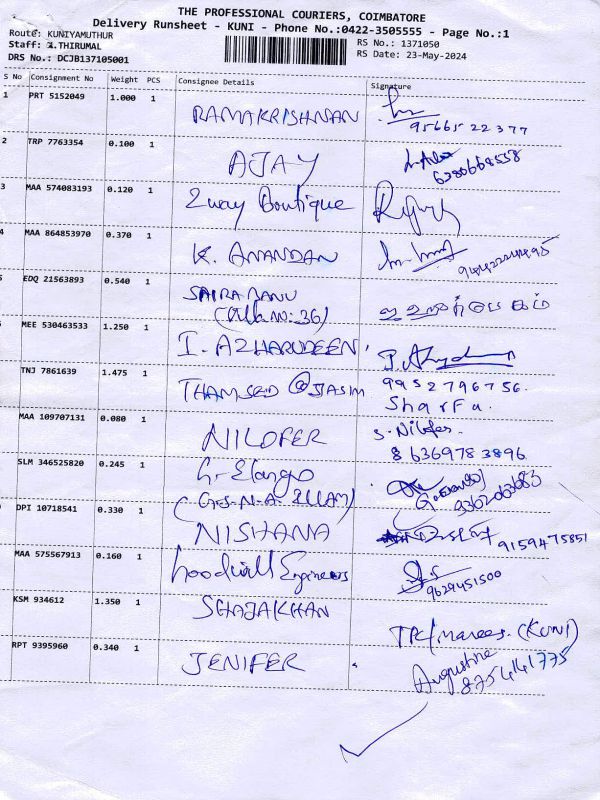 THE PROFESSIONAL COURIERS, COIMBATORE
Delivery Runsheet - KUNI - Phone No.:0422-3505555 - Page No.:1
Route: KUNIYAMUTHUR
RS No.: 1371050
Staff: A.THIRUMAL
RS Date: 23-May-2024
DRS No.: DCJB137105001
S No Consignment No Weight PCS Consignee Details Signature
1 PRT 5152049 1.000 1 RAMAKRISHNAN
95665 22377
2 TRP 7763354 0.100 1 AJAY
6380668558
3 MAA 574083193 0.120 1 2way Boutique
4 MAA 864853970 0.370 1 K. ANANDAN
5 EDQ 21563893 0.540 1 SAIRA BANU
(Villa No: 36)
MEE 530463533 1.250 1 I. AZHARUDEEN
TNJ 7861639 1.475 1 THAMSED @ JASIM 9952796756.
Sharfa.
MAA 109707131 0.080 1 NILOFER S. Nilofer
8 636978 3896
SLM 346525820 0.245 1 G. Elango
(G.S.N.A. ILLAM)
DPI 10718541 0.330 1 NISHANA 9159475851
MAA 575567913 0.160 1 Goodwill Engineers
9629451500
KSM 934612 1.350 1 SHAJAKHAN (KUNI)
RPT 9395960 0.340 1 JENIFER Augustine
8754141775